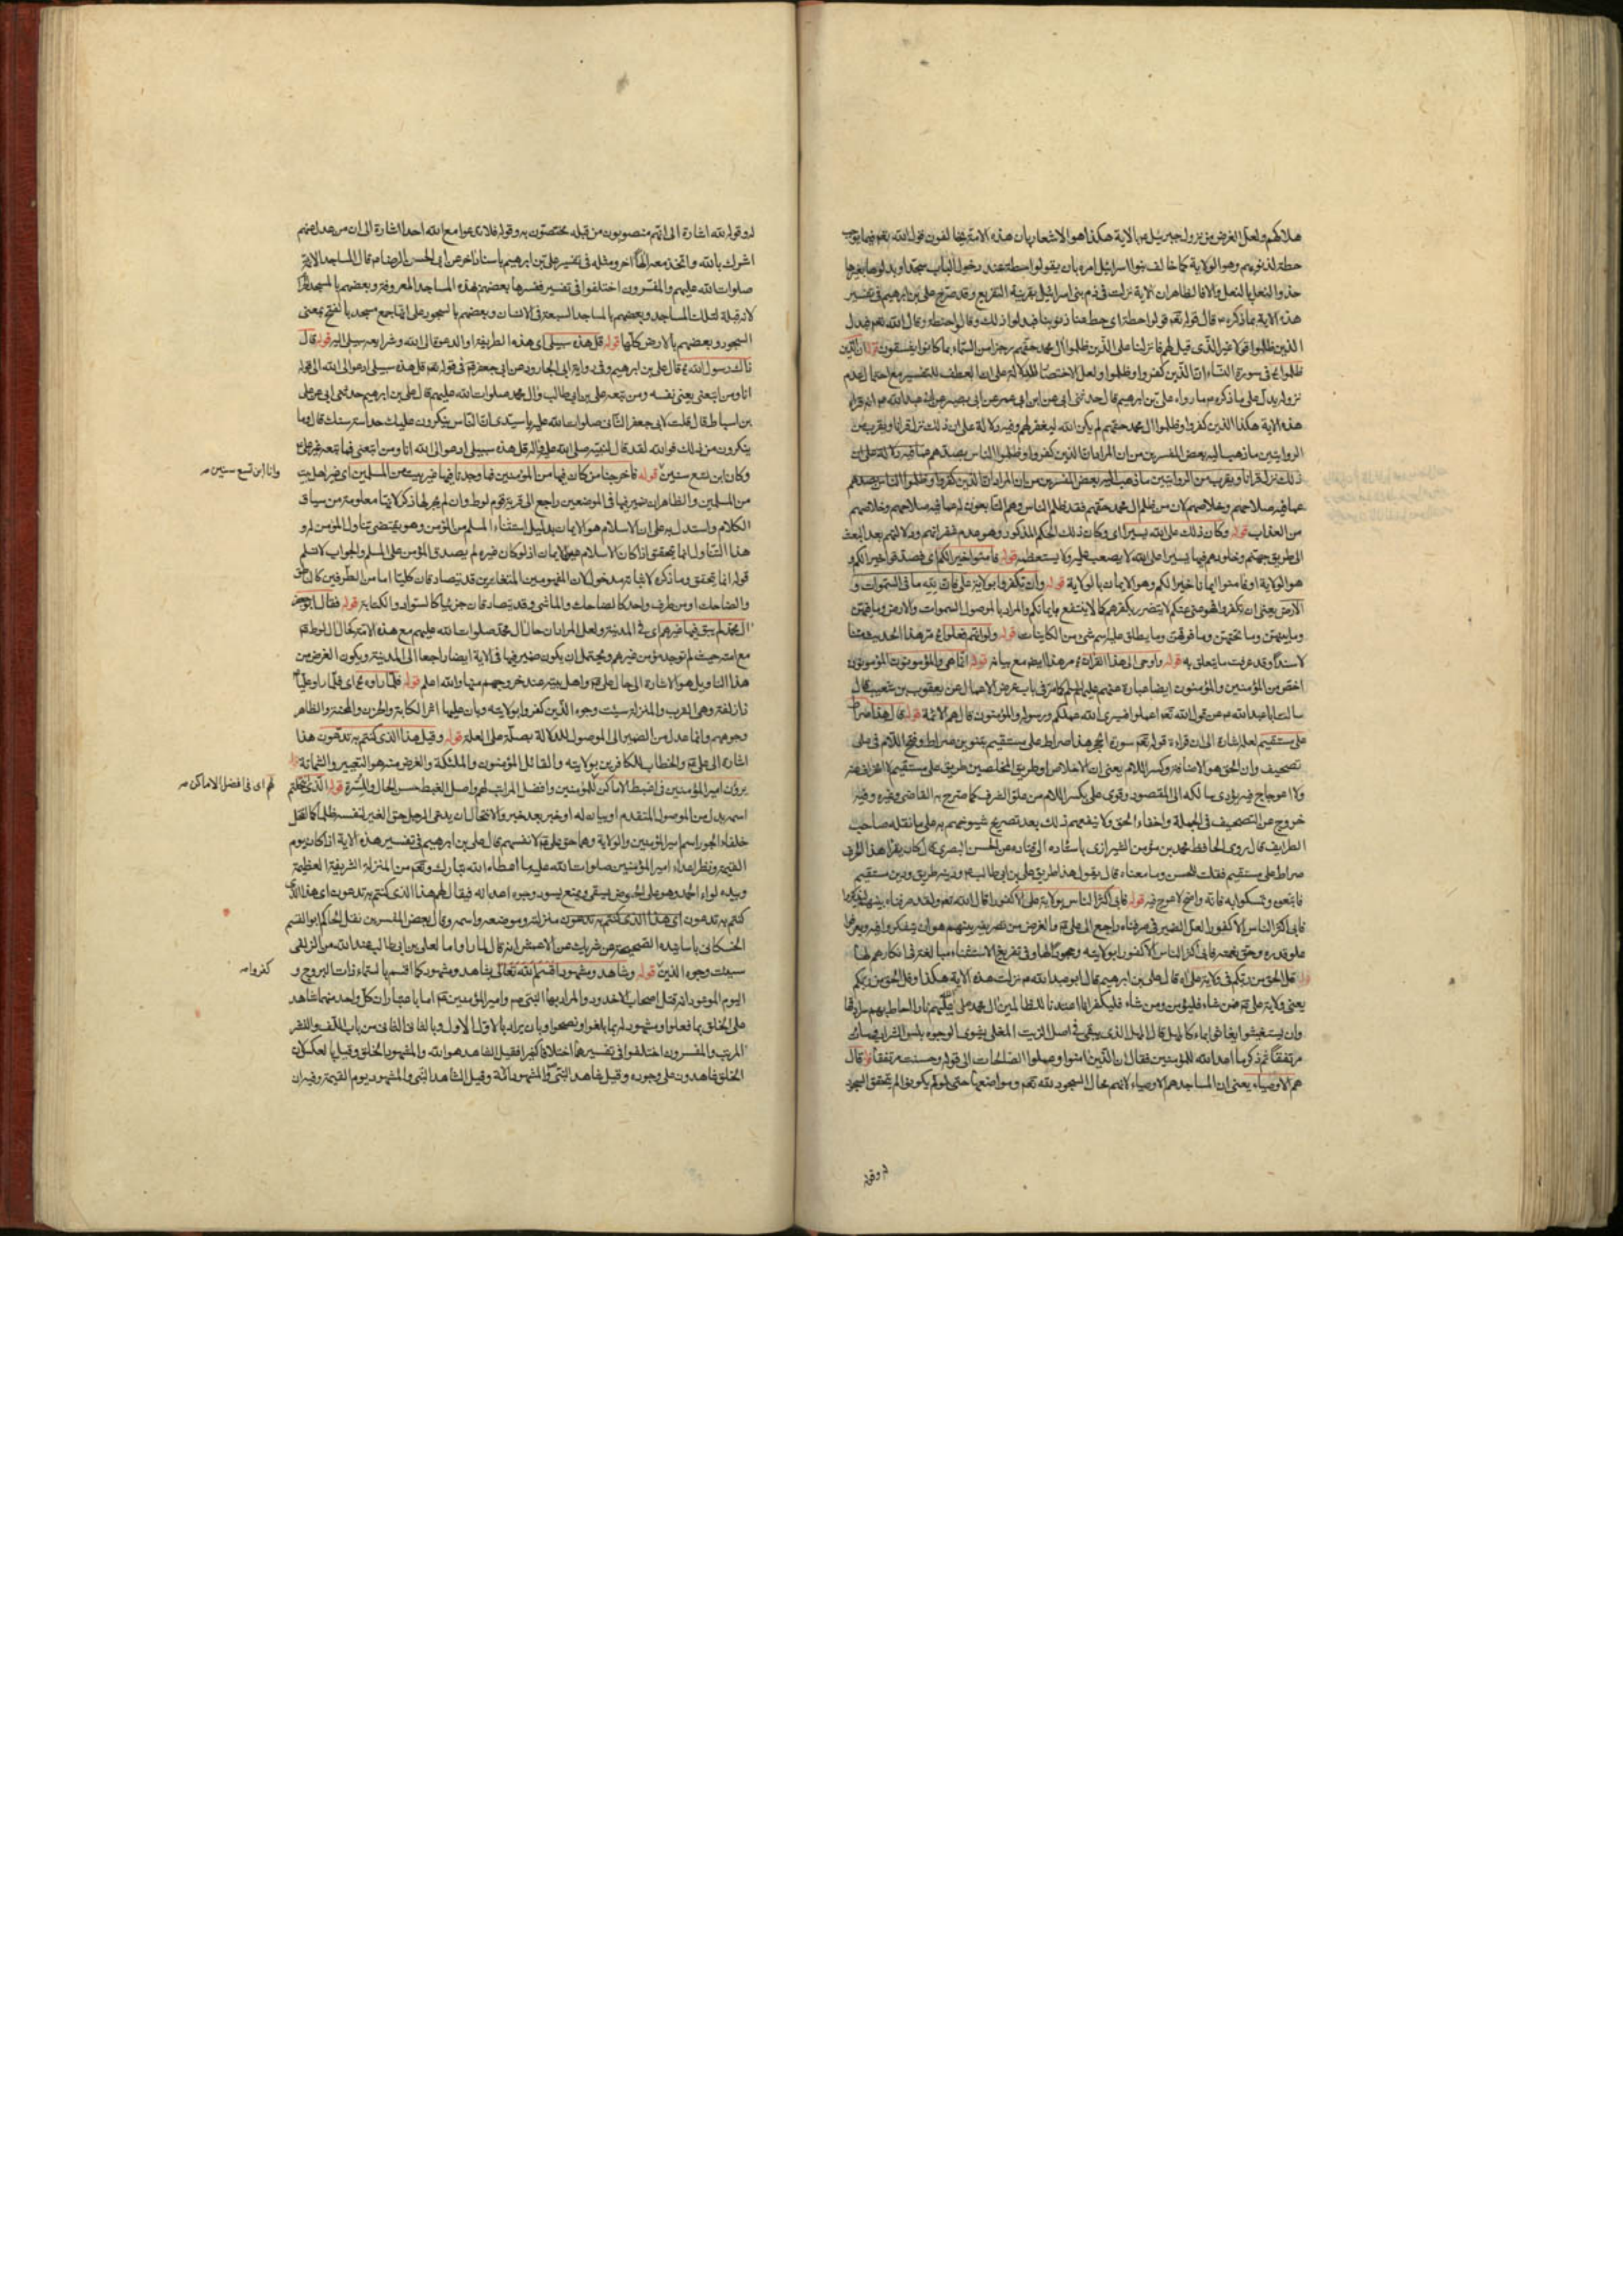 هلاكهم ولعل الغرض من نزول جبرئيل ع بالاية هكذا هو الاشعار بان هذه الامة يخالفون قول الله تعالى فيما يوجب
حطة لذنوبهم وهو الولاية كما خالف بنوا اسرائيل امره بان يقولوا حطة عند دخول الباب سجدا وبدلوها بغيرها
حذوا النعل بالنعل والا فالظاهر ان الاية نزلت في ذم بني اسرائيل بقرينة التفريع وقد صرح علي بن ابرهيم في تفسير
هذه الاية بما ذكره قال قوله تعالى قولوا حطة اى حط عنا ذنوبنا فبدلوا ذلك وقالوا حنطة وقال الله تعالى فبدل
الذين ظلموا قولا غير الذى قيل لهم فانزلنا على الذين ظلموا ال محمد حقهم رجزا من السماء بما كانوا يفسقون قوله ان الذين
ظلموا في سورة النساء ان الذين كفروا وظلموا ولعل الاختصار للدلالة على ان العطف للتفسير مع احتمال عدم
نزوله يدل على ما ذكره ما رواه على بن ابرهيم قال حدثنى ابى عن ابن ابى عمير عن ابى بصير عن ابى عبد الله ع انه قراء
هذه الاية هكذا الذين كفروا وظلموا ال محمد حقهم لم يكن الله ليغفر لهم وفيه دلالة على ان ذلك نزل قرانا ويقرب من
الروايتين ما ذهب اليه بعض المفسرين من ان المراد ان الذين كفروا وظلموا الناس بصدهم عما فيه
ذلك نزل قرانا ويقرب من الروايتين ما ذهب اليه بعض المفسرين من ان المراد ان الذين كفروا وظلموا الناس بصدهم
عما فيه صلاحهم وخلاصهم لان من ظلم ال محمد حقهم فقد ظلم الناس وهم التابعون لهم عما فيه صلاحهم وخلاصهم
من العذاب قوله وكان ذلك على الله يسيرا اى وكان ذلك الحكم المذكور وهو عدم مغفرتهم ودلالتهم بعد البعث
الى طريق جهنم وخلودهم فيها يسيرا على الله لا يصعب عليه ولا يستعظمه قوله فامنوا خيرا لكم اى فصدقوا خيرا لكم و
هو الولاية او فامنوا ايمانا خيرا لكم وهو الايمان بالولاية قوله وان تكفروا بولاية علي فان لله ما في السموات و
الارض يعنى ان تكفروا فهو غنى عنكم لا يتضرر بكفركم كما لا ينتفع بايمانكم والمراد بالموصول السموات والارض وما فيهن
وما بينهن وما تحتهن وما فوقهن وما يطلق عليه اسم شئ من الكاينات قوله ولو انهم فعلوا مر هذا الحديث متنا
لا سندا وقد عرفت ما يتعلق به قوله واوحى الى هذا القران مر هذا ايضا مع بيانه قوله انما هى والمؤمنون المؤمنون
اخص من المؤمنين والمؤمنون ايضا عبارة عنهم عليهم السلام كما مر في باب عرض الاعمال عن يعقوب بن شعيب قال
سالت ابا عبد الله ع عن قول الله تعالى اعملوا فسيرى الله عملكم ورسوله والمؤمنون قال هم الائمة قوله قال هذا صراط
على مستقيم لعله اشارة الى ان قراءة قوله تعالى سورة الحجر هذا صراط على مستقيم بتنوين صراط وفتح اللام في على
تصحيف وان الحق هو الاضافة وكسر اللام يعنى ان الاخلاص او طريق المخلصين طريق على مستقيم لا انحراف عنه
ولا اعوجاج فيه يؤدى سالكه الى المقصود وقرى على بكسر اللام من علو الشرف كما صرح به القاضى وغيره وفيه
خروج عن التصحيف في الجملة واخفاء الحق ولا ينفعهم ذلك بعد تصريح شيوخهم به على ما نقله صاحب
الطرايف قال روى الحافظ محمد بن مؤمن الشيرازى باسناده الى قتاده عن الحسن البصرى قال كان يقرا هذا الحرف
صراط على مستقيم فقلت للحسن وما معناه قال يقول هذا طريق على بن ابى طالب ع ودينه طريق ودين مستقيم
فاتبعوه وتمسكوا به فانه واضح لا عوج فيه قوله فابى اكثر الناس بولاية على الا كفورا قال الله تعالى ولقد صرفناه بينهم ليذكروا
فابى اكثر الناس الا كفورا لعل الضمير في صرفناه راجع الى على ع والغرض من تصريفه بينهم هو ان يتفكروا فيه ويعرفوا
علو قدره وحق نعمته فابى اكثر الناس الا كفورا بولايته وجحودا لها وفي تفريغ الاستثناء مبالغة في انكارهم لها
قوله قل الحق من ربكم في ولاية على اه قال على بن ابرهيم قال ابو عبد الله ع نزلت هذه الاية هكذا وقل الحق من ربكم
يعنى ولاية على ع فمن شاء فليؤمن ومن شاء فليكفر انا اعتدنا للظالمين ال محمد حقهم نارا احاط بهم سرادقها
وان يستغيثوا يغاثوا بماء كالمهل قال المهل الذى يبقى في اصل الزيت المغلى يشوى الوجوه بئس الشراب وساءت
مرتفقا ثم ذكر ما اعد الله للمؤمنين فقال ان الذين امنوا وعملوا الصالحات الى قوله وحسنت مرتفقا قوله قال
هم الاوصياء يعنى ان المساجد هم الاوصياء لانهم محال السجود لله تعالى ومواضعها حتى لو لم يكونوا لم يتحقق السجود
له وقوله
له وقوله لله اشارة الى انهم منصوبون من قبله مختصون به وقوله فلا تدعوا مع الله احدا اشارة الى ان من عدل عنهم
اشرك بالله واتخذ معه الها اخر ومثله في تفسير على بن ابرهيم باسناد اخر عن ابى الحسن الرضا ع قال المساجد الائمة
صلوات الله عليهم والمفسرون اختلفوا في تفسيره ففسرها بعضهم بهذه المساجد المعروفة وبعضهم بالمسجد الحرام
لانه قبلة لتلك المساجد وبعضهم بالمساجد السبعة في الانسان وبعضهم بالسجود على انها جمع مسجد بالفتح بمعنى
السجود وبعضهم بالارض كلها قوله قل هذه سبيلى اى هذه الطريقة او الدعوة الى الله وشرايعه سبيلى اليه قوله قال
ذاك رسول الله ص قال على بن ابرهيم وفي رواية ابى الجارود عن ابى جعفر ع في قوله تعالى قل هذه سبيلى ادعوا الى الله الى قوله
انا ومن اتبعنى يعنى نفسه ومن تبعه على بن ابى طالب وال محمد صلوات الله عليهم قال على بن ابرهيم حدثنى ابى عن على
بن اسباط قال قلت لابى جعفر الثانى صلوات الله عليه يا سيدى ان الناس ينكرون عليك حداثة سنك قال وما
ينكرون من ذلك فوالله لقد قال لنبيه صلى الله عليه واله قل هذه سبيلى ادعوا الى الله انا ومن اتبعنى فما تبعه غير على ع
وكان ابن تسع سنين قوله فاخرجنا من كان فيها من المؤمنين فما وجدنا فيها غير بيت من المسلمين اى غير اهل بيت
وانا ابن تسع سنين صح
من المسلمين والظاهر ان ضمير فيها في الموضعين راجع الى قرية قوم لوط وان لم يجر لها ذكر لانها معلومة من سياق
الكلام واستدل به على ان الاسلام هو الايمان بدليل استثناء المسلم من المؤمن وهو يقتضى تناول المؤمن له و
هذا التناول انما يتحقق اذا كان الاسلام هو الايمان اذ لو كان غيره لم يصدق المؤمن على المسلم والجواب لا نسلم
قوله انما يتحقق وما ذكره لاثباته مدخول لان المفهومين المتغايرين قد يتصادقان كليا اما من الطرفين كالناطق
والضاحك او من طرف واحد كالضاحك والماشى وقد يتصادقان جزئيا كالسواد والكتابة قوله فقال ابو جعفر
ال محمد لم يبق فيها غيرهم اى في المدينة ولعل المراد ان حال ال محمد صلوات الله عليهم مع هذه الامة كحال ال لوط ع
مع امته حيث لم توجد مؤمن غيرهم ويحتمل ان يكون ضمير فيها في الاية ايضا راجعا الى المدينة ويكون الغرض من
هذا التاويل هو الاشارة الى حال على ع واهل بيته عند خروجهم منها والله اعلم قوله فلما راوه اى فلما راوا عليا
ذا زلفة وهى القرب والمنزلة سيئت وجوه الذين كفروا بولايته وبان عليها اثر الكابة والحزن والمحنة والظاهر
وجوههم وانما عدل من الضمير الى الموصول للدلالة بصلته على العلة قوله وقيل هذا الذى كنتم به تدعون هذا
اشارة الى على ع والخطاب للكافرين بولايته والقائل المؤمنون والملئكة والغرض منه هو التعيير والشماتة قوله
يرون امير المؤمنين في اغبط الاماكن للمؤمنين وافضل المراتب لهم واصل الغبط حسن الحال والمسرة قوله الذى انتحلتم
لهم اى في افضل الاماكن صح
اسمه بدل من الموصول المتقدم او بيان له او خبر بعد خبر والانتحال ان يدعى الرجل حق الغير لنفسه ظلما كما انتحل
خلفاء الجور اسم امير المؤمنين والولاية وهما حق على ع لانفسهم قال على بن ابرهيم في تفسير هذه الاية اذا كان يوم
القيمة ونظر اعداء امير المؤمنين صلوات الله عليه ما اعطاه الله تبارك وتعالى من المنزلة الشريفة العظيمة
وبيده لواء الحمد وهو على الحوض يسقى ويمنع يسود وجوه اعدائه فيقال لهم هذا الذى كنتم به تدعون اى هذا الذى
كنتم به تدعون اى هذا الذى كنتم به تدعون منزلته وموضعه واسمه وقال بعض المفسرين نقل الحاكم ابو القسم
الحسكانى باسانيده الصحيحة عن شريك عن الاعمش انه قال لما راوا ما لعلى بن ابى طالب عند الله من الزلفى
سيئت وجوه الذين قوله وشاهد ومشهود اقسم الله تعالى بشاهد ومشهود كما اقسم بالسماء ذات البروج و
كفروا صح
اليوم الموعود انه قتل اصحاب الاخدود والمراد بهما النبى ص وامير المؤمنين ع اما باعتبار ان كل واحد منهما شاهد
على الخلق بما فعلوا ومشهود له بما بلغوا ونصحوا او بان يراد بالاول الاول وبالثانى الثانى من باب اللف والنشر
المرتب والمفسرون اختلفوا في تفسيرهما اختلافا كثيرا فقيل الشاهد هو الله والمشهود الخلق وقيل بالعكس لان
الخلق شاهدون على وجوده وقيل شاهد النبى والمشهود امته وقيل الشاهد النبى والمشهود يوم القيمة وفيه ان